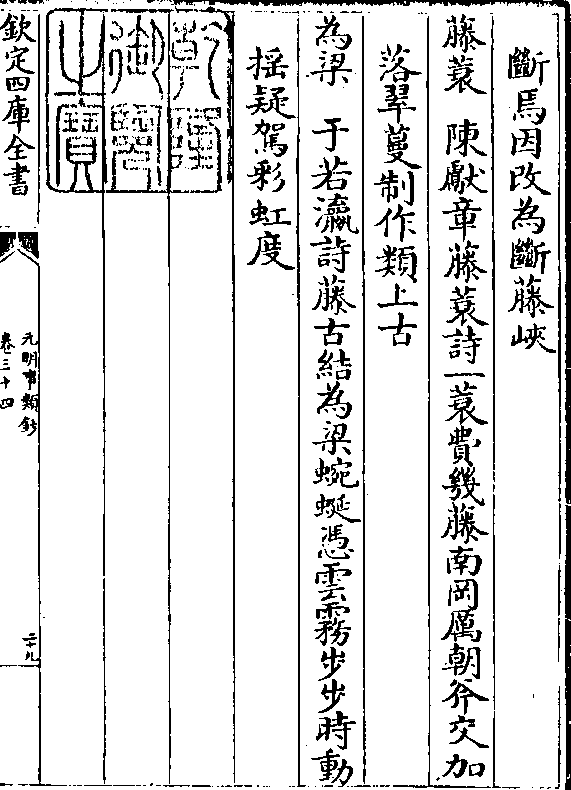 斷焉因改為斷藤峽
藤蓑　陳獻章藤蓑詩一蓑費幾藤南岡厲朝斧交加
落翠蔓制作類上古
為梁　于若瀛詩藤古結為梁蜿蜒憑雲霧步步時動
揺疑駕彩虹度
乾隆御覽之寶
欽定四庫全書
元明事類鈔
卷三十四
二十九